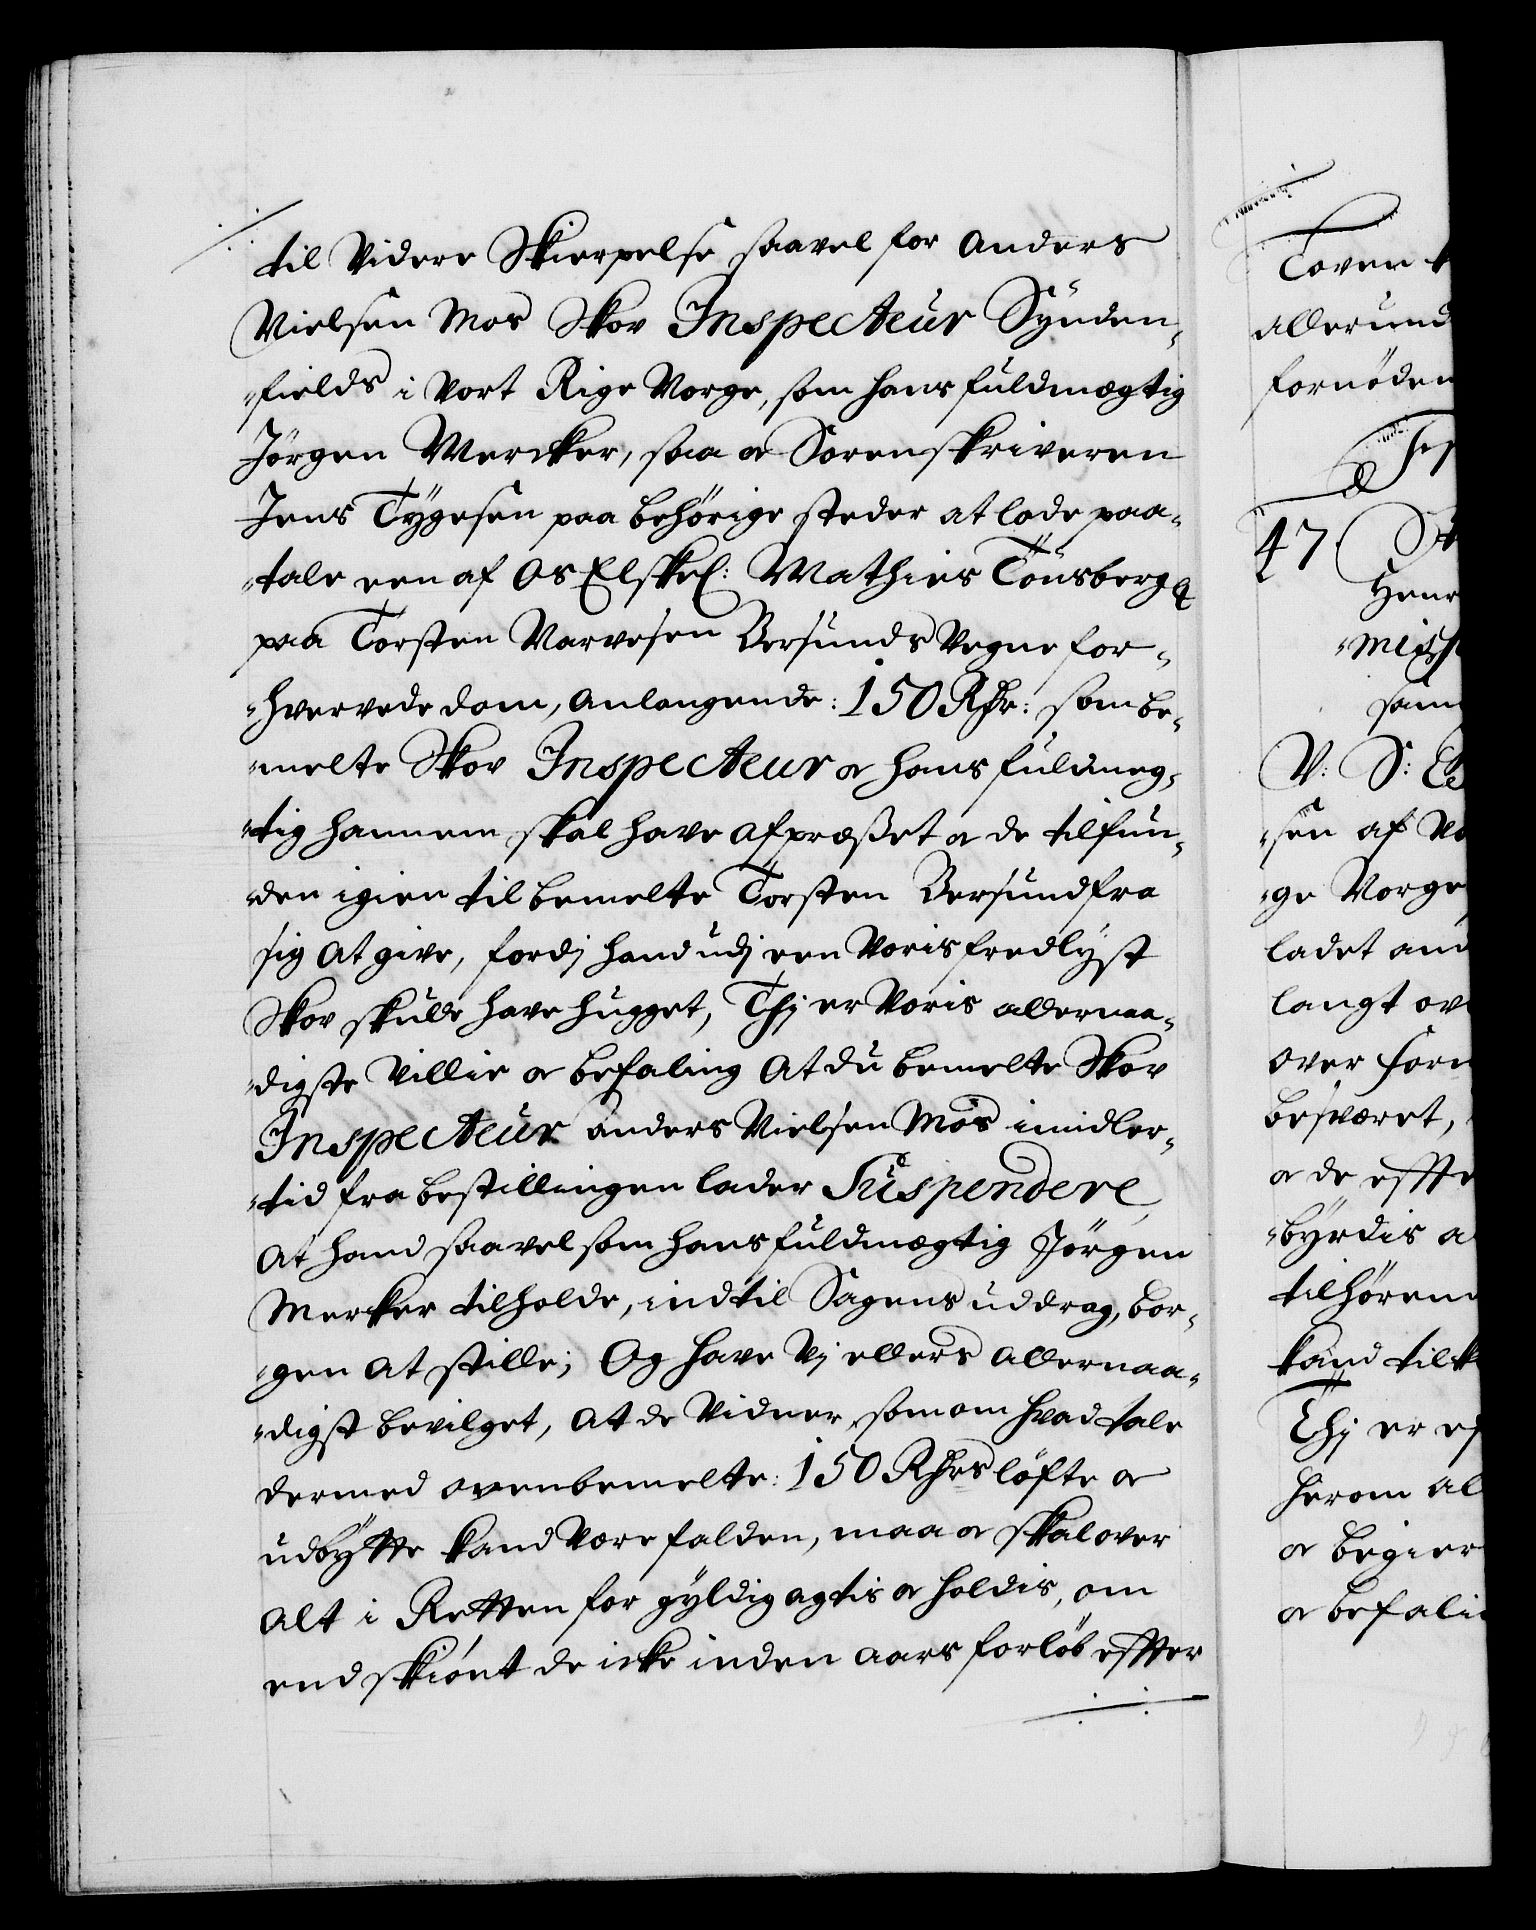 til Videre Skierpelse saavel for Anders
Nielsen Moes Skov Inspecteur Synden-
-fields i Vort Rige Norge, som hans fuldmægtig
Jörgen Mercker, saa og Sorenskriveren
Jens Tygesen paa behörige steder at lade paa-
-tale een af Os Elskel: Mathies Tönsberg
paa Torsten Narvesen Bersunds Vegne for-
-hvervede dom, Anlangende: 150 Rdr: som be-
-melte Skov Inspecteur og hans fuldmeg-
-tig hannem skal have afpresset og de tilfun-
-den igien til bemelte Torsten Bersund fra
sig at give, fordj hand udj een Voris fredlyst
Skov skulde have hugget, Thj er Voris allernaa-
-digste Villie og befaling At du bemelte Skov
Inspecteur Anders Nielsen Moes imidler-
-tid fra bestillingen lader Suspendere,
At hand saavel som hans fuldmægtig Jörgen
Merker tilholde, indtil Sagens uddrag, bor-
-gen at stille; Og have Vj ellers Allernaa-
-digst bevilget, At de Vidner, som om hvad tale
dermed ovenbemelte: 150 Rdrs löfte og
udbytte kand Være falden, maa og skal over
Alt i Retten for gyldig agtis og holdis, om
endskiönt de icke inden Aars forlöb effter
Toven
Allerund
fornöden
47
Henr
-miss
sam
V: S:
-sen af Vo
-ge Norge
ladet and
langt ov
over forn
besværet,
og de effte
-byrdis a
tilhören
kand tilk
Thj er ef
herom al
og begier
og befali